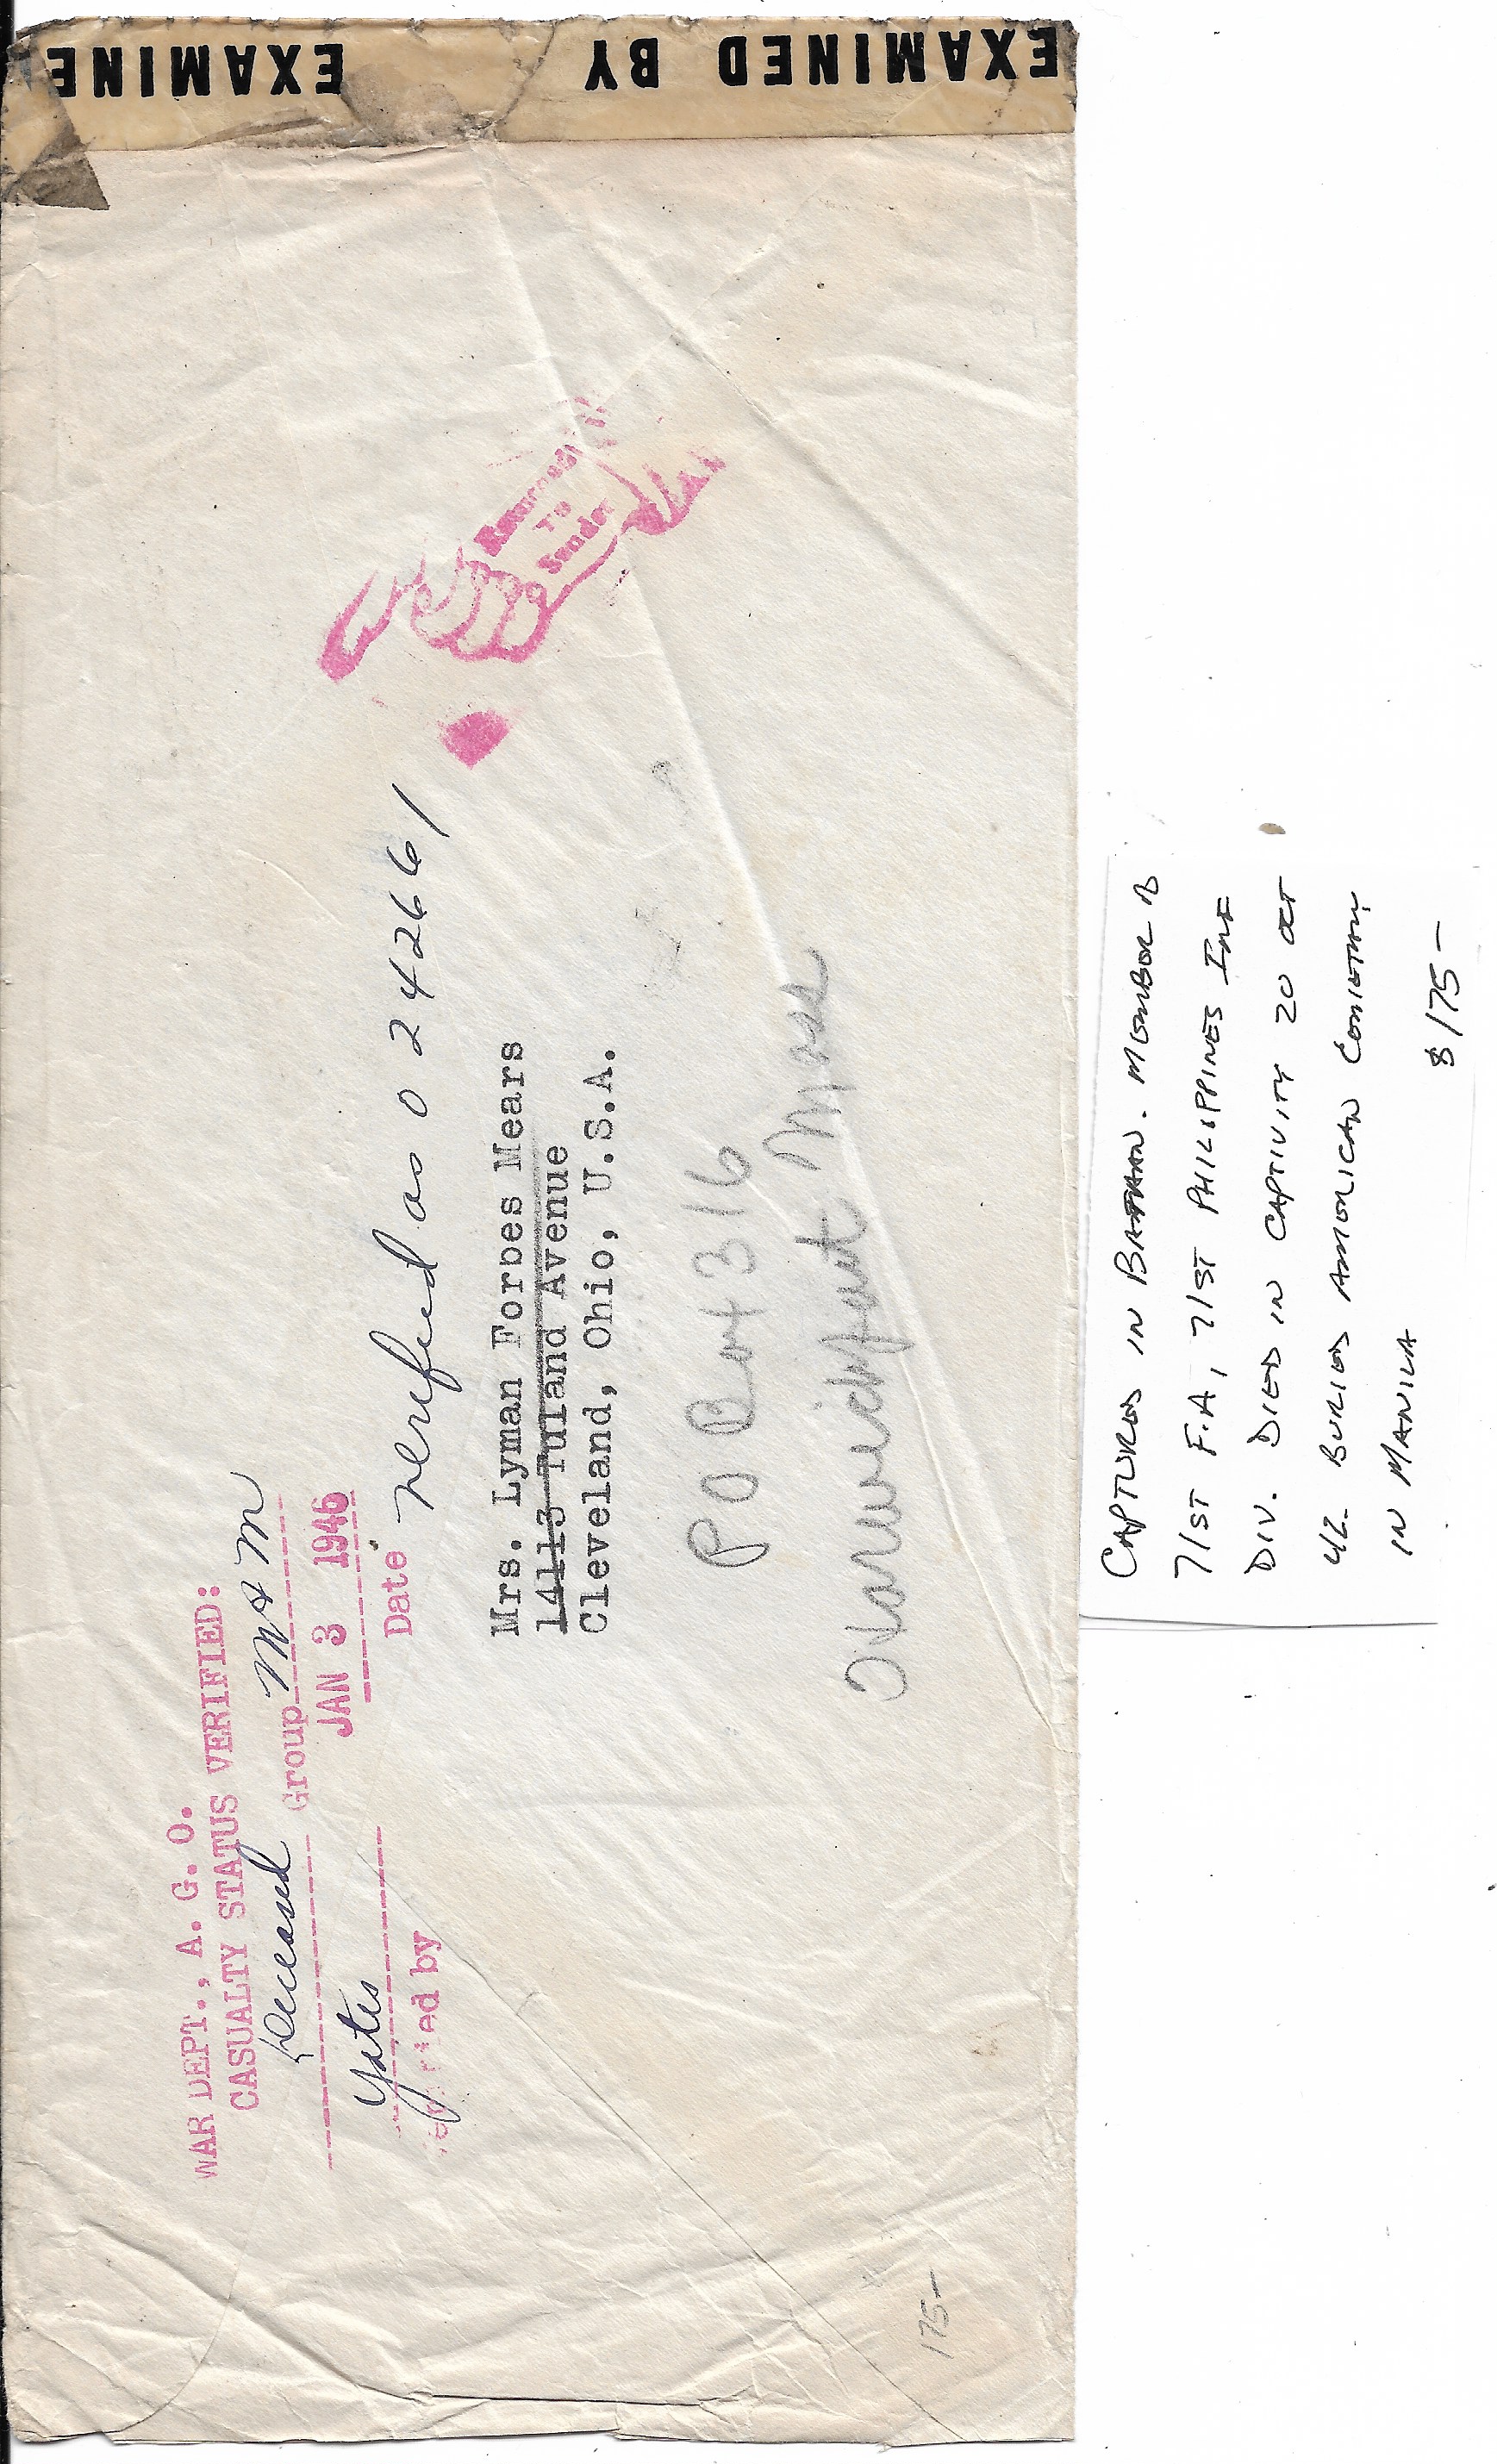 EXAMINED BY
EXAMINE
WAR DEPT., A. G. O.
CASUALTY STATUS VERIFIED:
Deceased Group M & M
JAN 3 1946
Yates Date
Verified by
Verified as 0 242661
Returned
To
Sender
Mrs. Lyman Forbes Mears
14113 Tuland Avenue
Cleveland, Ohio, U.S.A.
P O Box 316
Harwichport Mass
175-
CAPTURED IN BATAAN. MEMBER B
71ST F.A, 71ST PHILIPPINES INF
DIV. DIED IN CAPTIVITY 20 OCT
42. BURIED AMERICAN CEMETARY
IN MANILA
$175-